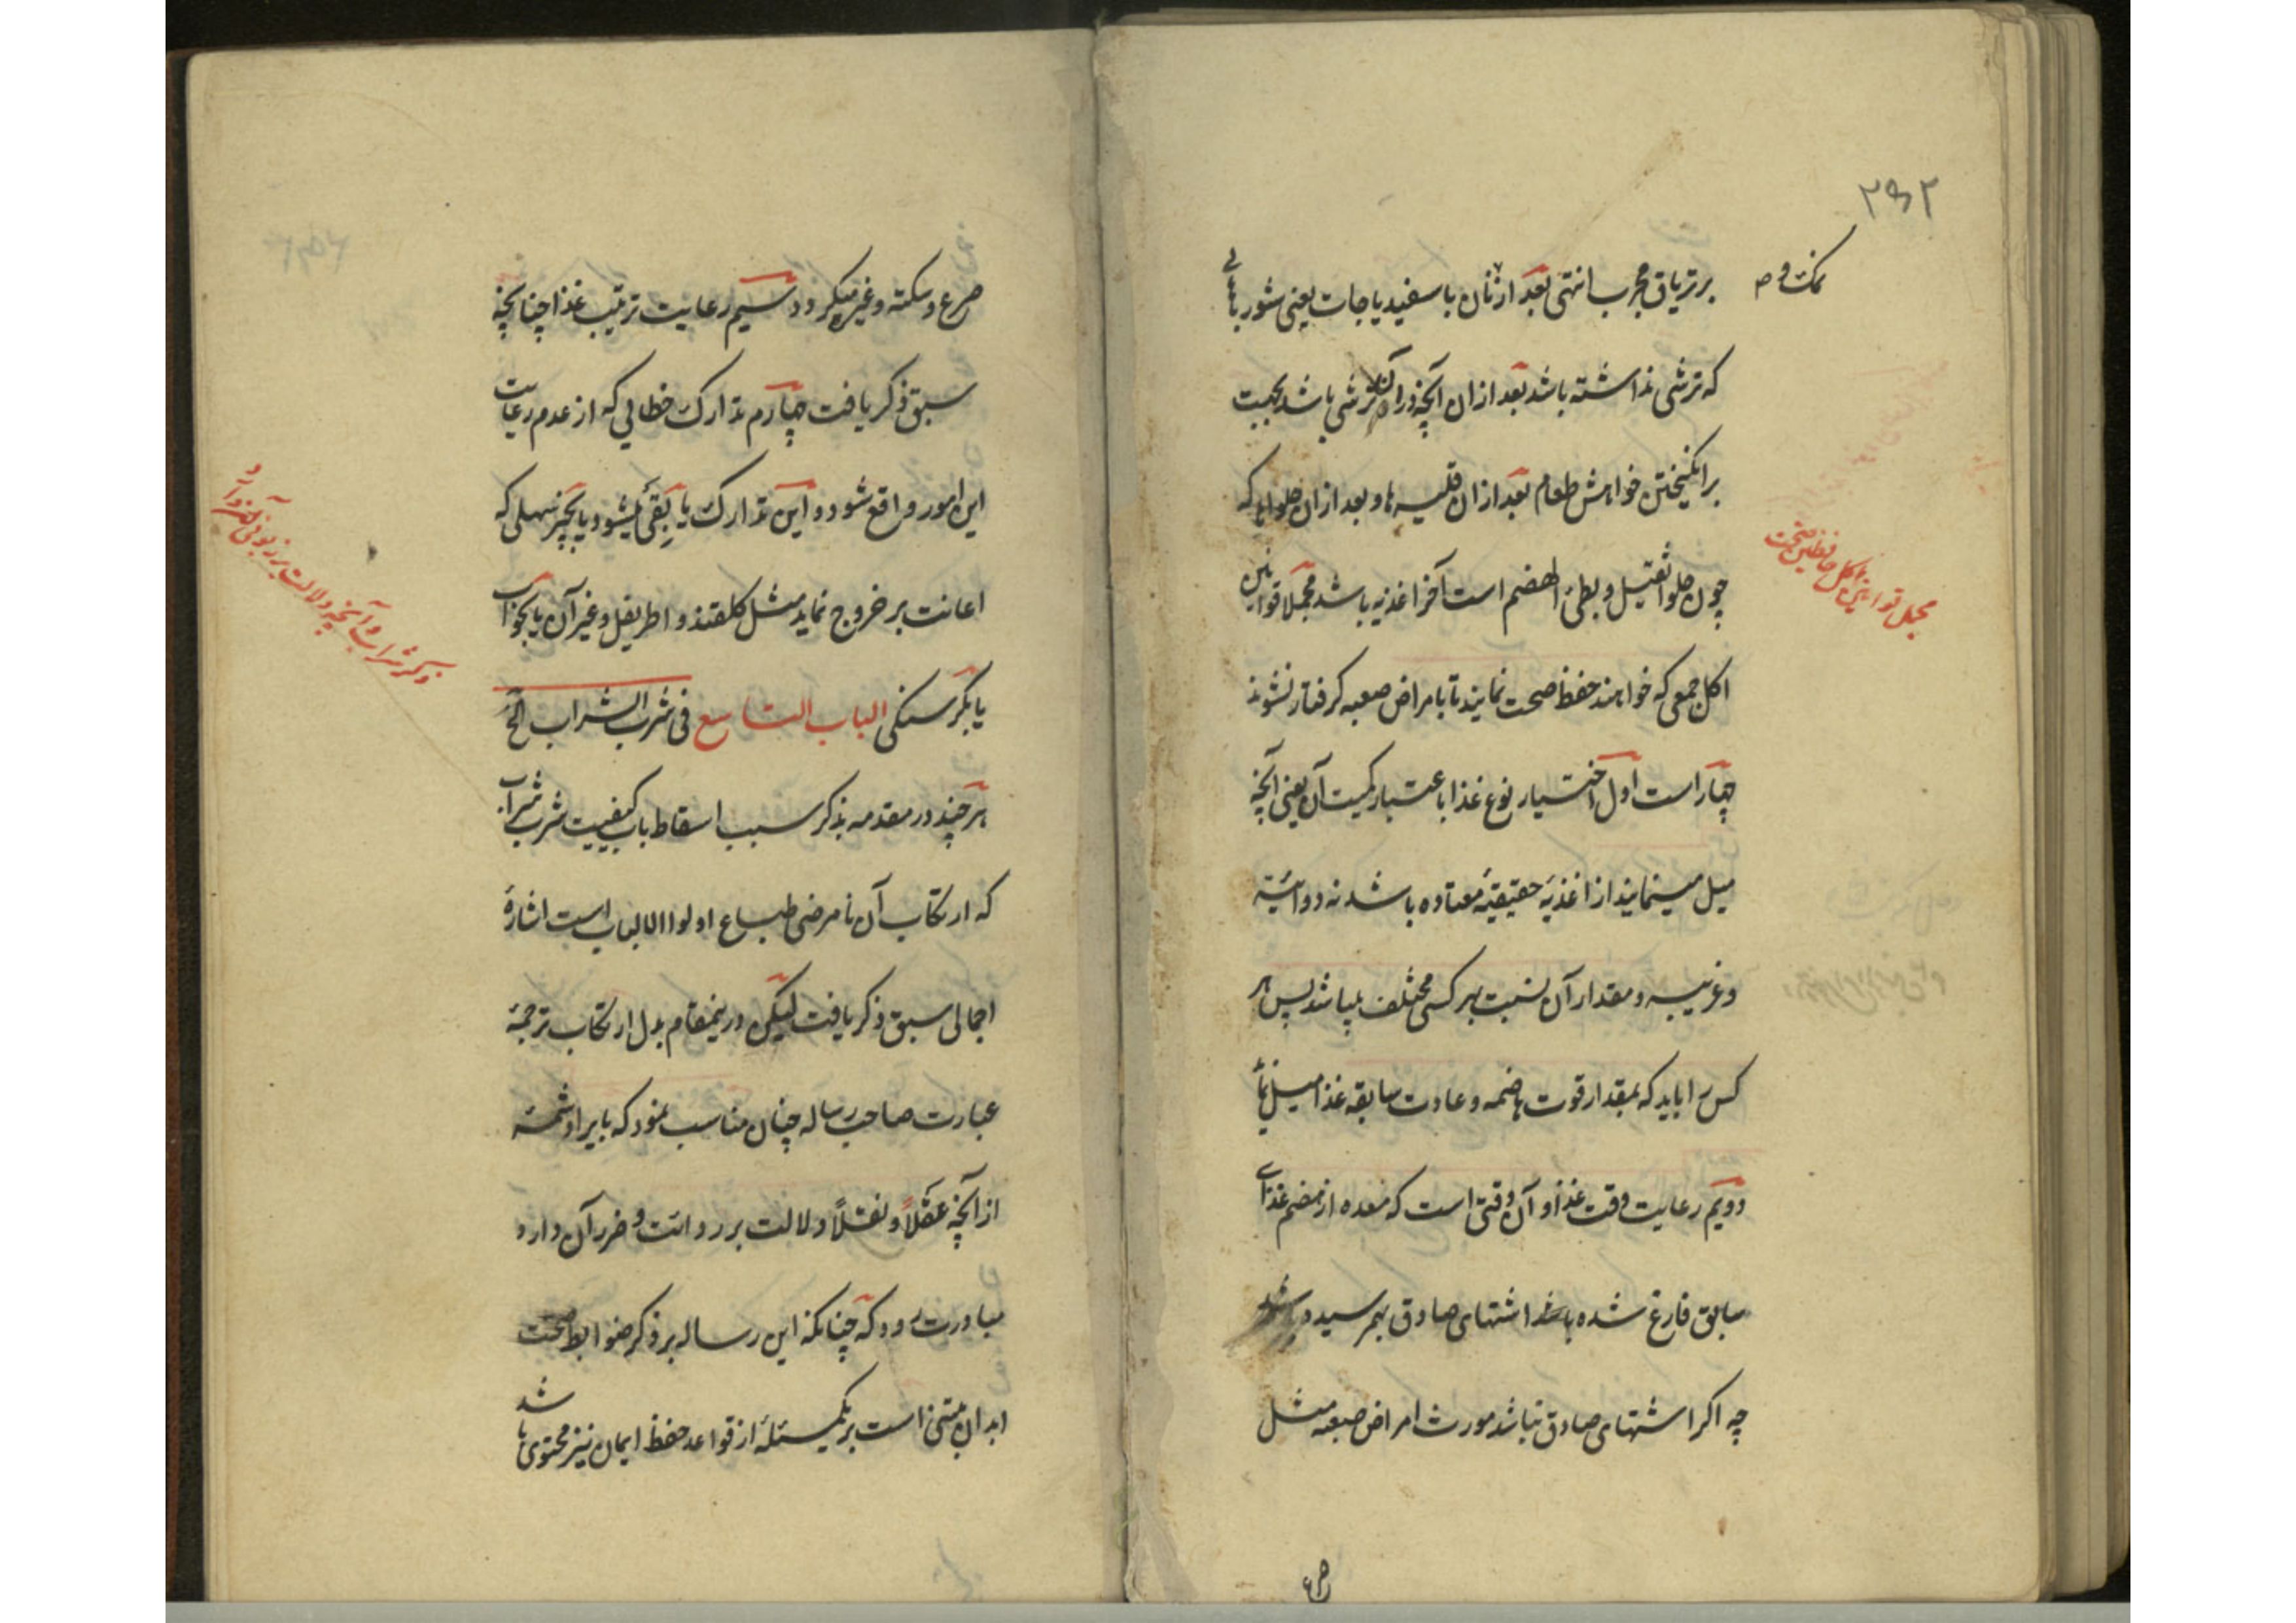 ۲۵۲
نمک و ص
بر تریاق مجرب انتهی بعد از نان با سفیدیاجات یعنی شوربا هائی
که ترشی نداشته باشد بعد ازان آنچه دران ترشی باشد بجهت
برانکیختن خواهش طعام بعد ازان قلیه ها و بعد ازان حلواها که
چون حلوا ثقیل و بطئ الهضم است آخر اغذیه باشد مجملا قوانین
مجمل قوانین اکل حافظین صحت
اکل جمعی که خواهند حفظ صحت نمایند تا بامراض صعبه کرفتار نشوند
چهار است اول اختیار نوع غذا باعتبار کمیت آن یعنی آنچه
میل مینمایند از اغذیهٔ حقیقیهٔ معتاده باشد نه دوائیه
و غریبه و مقدار آن نسبت بهر کسی مختلف میباشد پس هر
کس را باید که بمقدار قوت هاضمه و عادت سابقه غذا میل نماید
دویم رعایت وقت غذا و آن وقتی است که معده از هضم غذای
سابق فارغ شده باشد اشتهای صادق بهم رسیده
چه اکر اشتهای صادق نباشد مورث امراض صعبه مثل
صرع
صرع و سکته و غیره میکردد سیم رعایت ترتیب غذا چنانچه
سبق ذکر یافت چهارم تدارک خطائی که از عدم رعایت
این امور واقع شود و این تدارک یا بقئ میشود یا بچیز مسهلی که
اعانت بر خروج نماید مثل کلقند و اطریفل و غیر آن یا بخواب
یا بکرسنکی الباب التاسع فی شرب الشراب الخ
ذکر شراب و آنچه دلالت بر زبونی
هر چند در مقدمه بذکر سبب اسقاط باب کیفیت شرب شراب
که ارتکاب آن نامرضی طباع اولوا الالباب است اشارهٔ
اجمالی سبق ذکر یافت لیکن درینمقام بدل ارتکاب ترجمهٔ
عبارت صاحب رساله چنان مناسب نمود که بایراد شمهٔ
از آنچه عقلاً و نقلاً دلالت بر ردائت و ضرر آن دارد
مبادرت رود که چنانکه این رساله بر ذکر ضوابط صحت
ابدان مبتنی است بر یکمسئله از قواعد حفظ ایمان نیز محتوی باشد